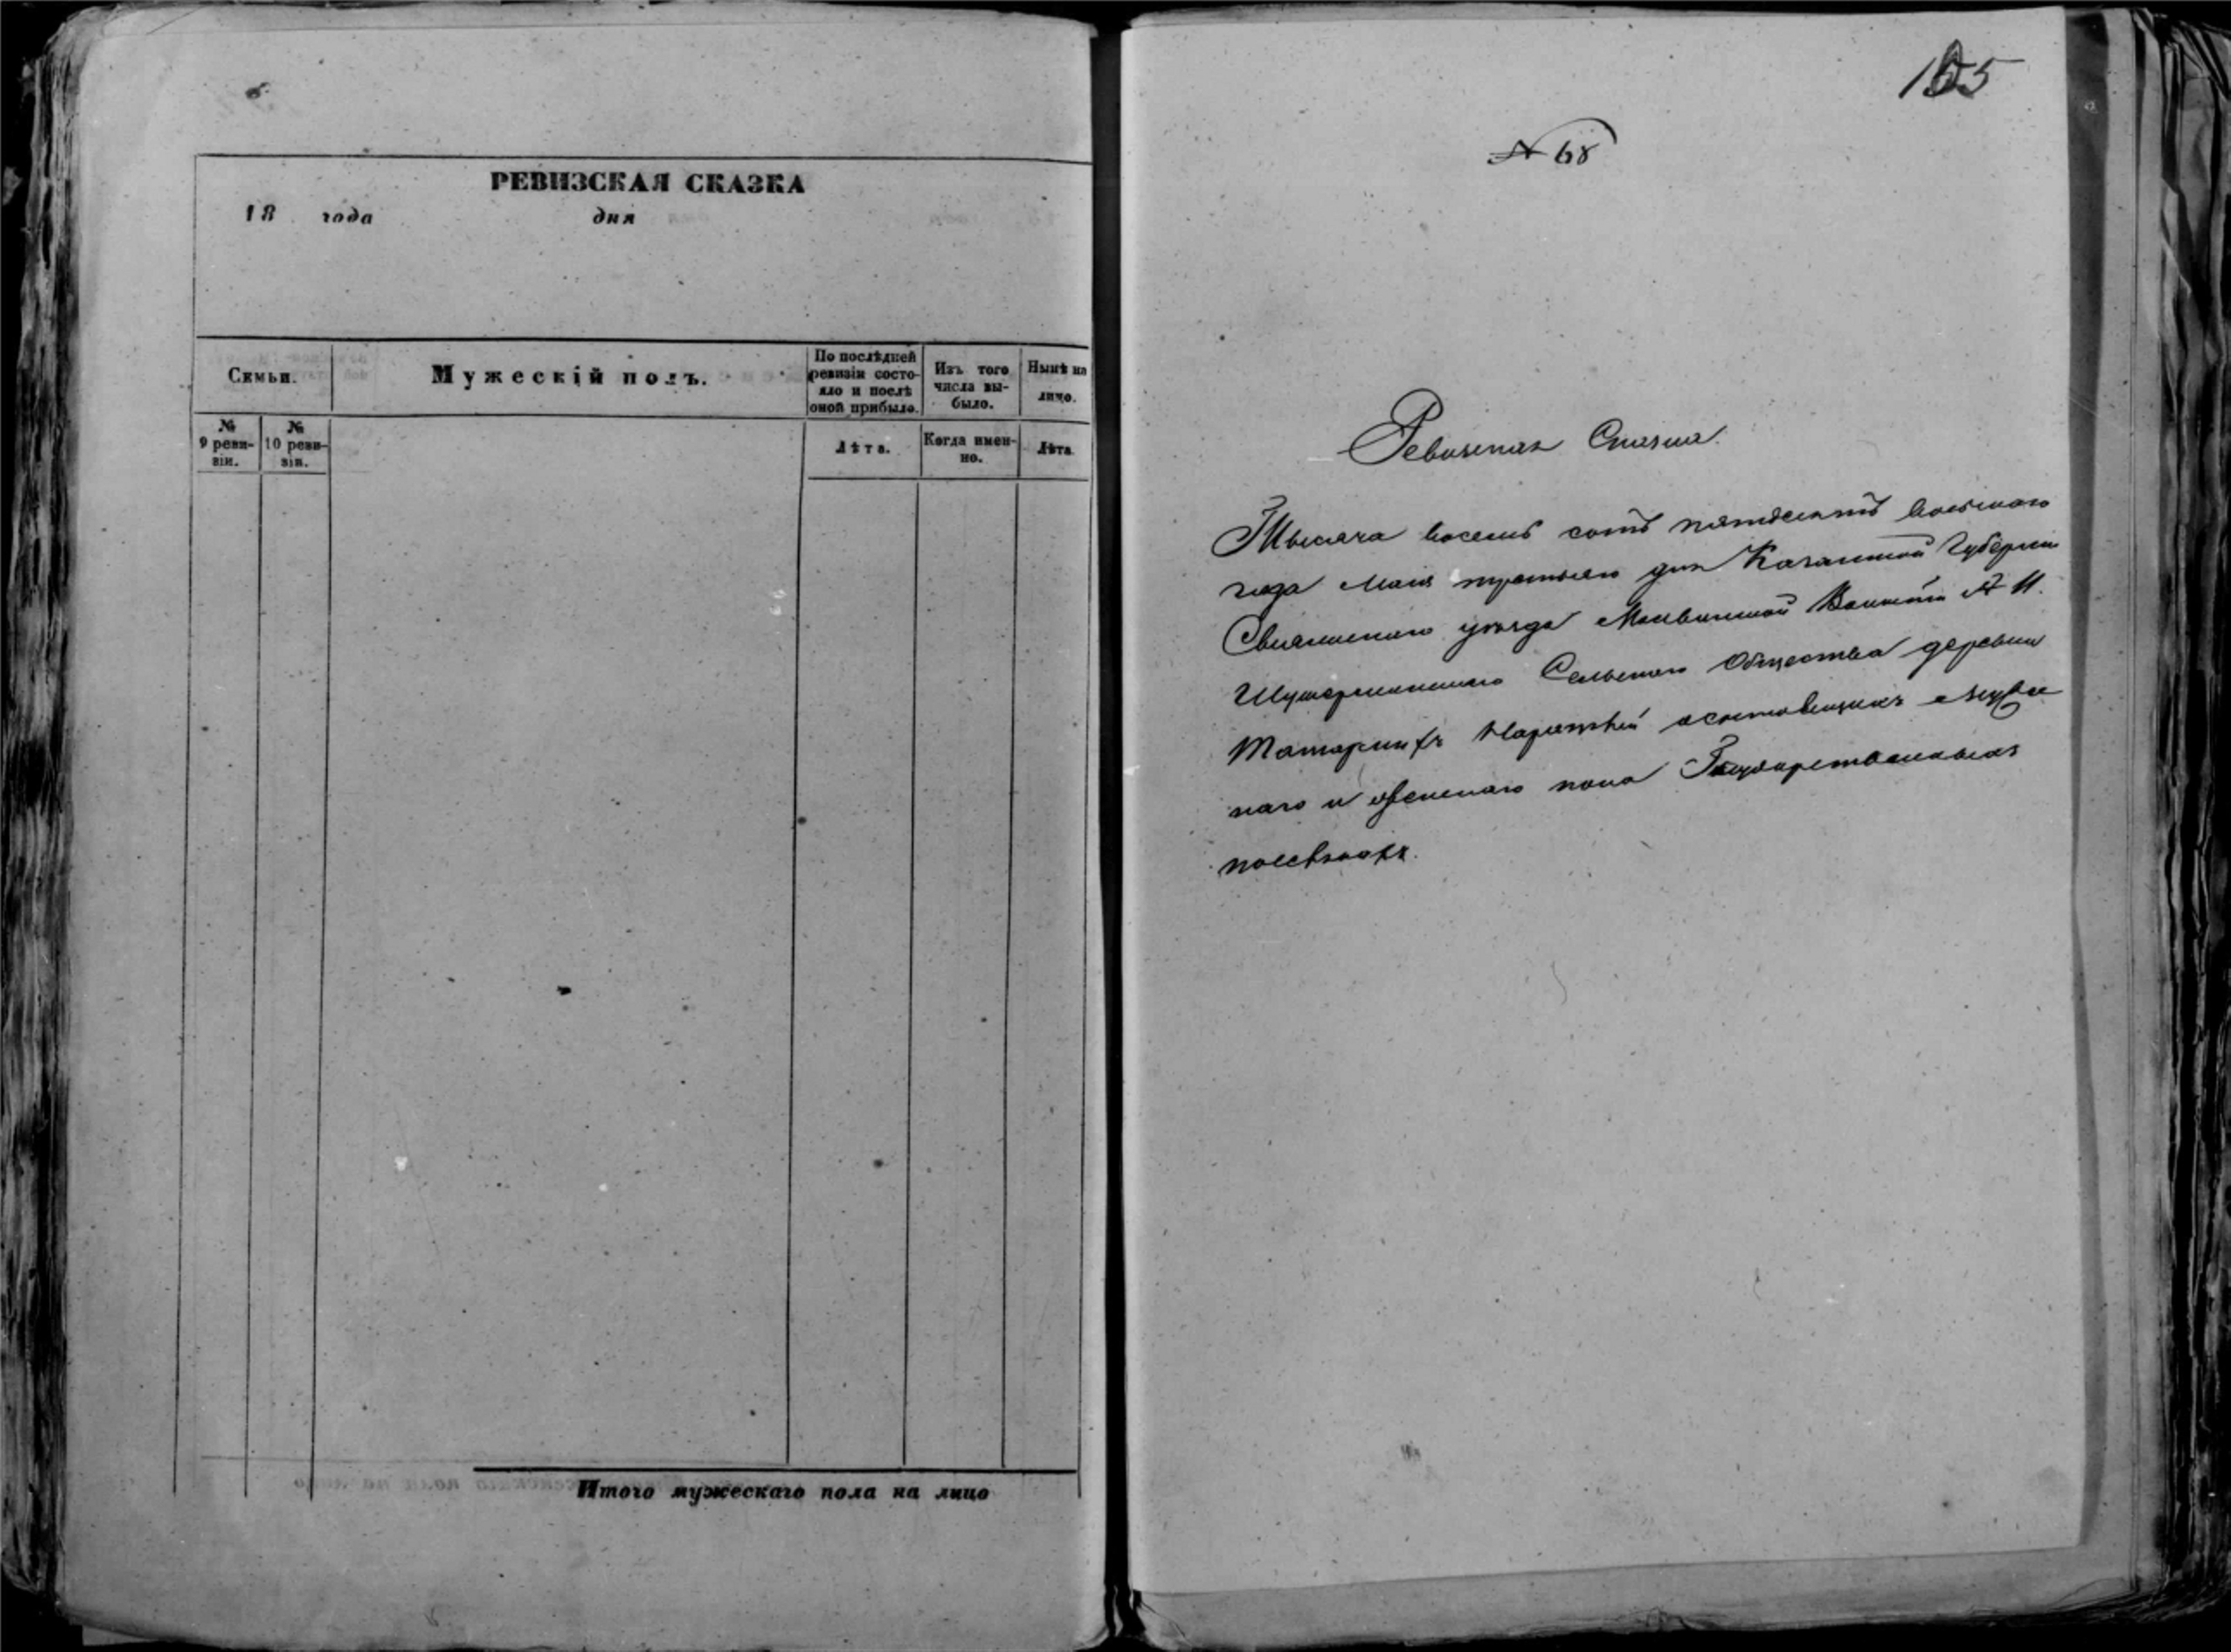 РЕВИЗСКАЯ СКАЗКА
18 года дня
Семьи.
Мужескій полъ.
По послѣдней ревизіи состояло и послѣ оной прибыло.
Изъ того числа выбыло.
Нынѣ на лицо.
№ 9 ревизіи.
№ 10 ревизіи.
Лѣта.
Когда именно.
Лѣта.
Итого мужескаго пола на лицо
155
№ 68
Ревизская Сказка.
Тысяча восемь сотъ пятьдесятъ восьмаго
года Мая третьяго дня Казанской Губерніи
Свіяжскаго уѣзда Волости № 11.
Сельскаго Общества деревни
Татарскихъ состоящихъ муже
скаго и женскаго пола Государственныхъ